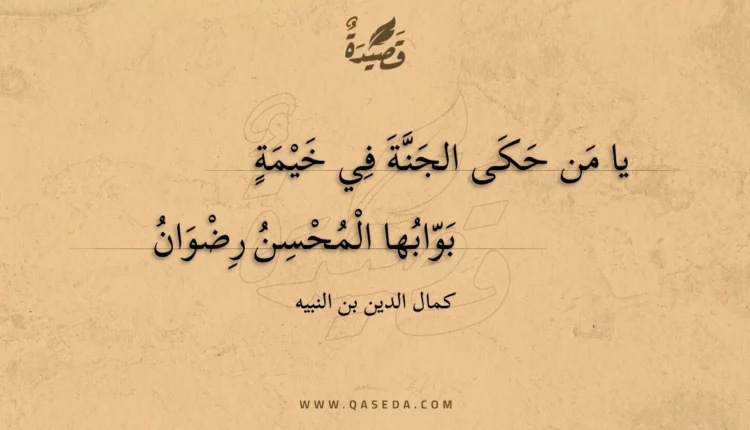 قَصِيْدَةٌ
يا مَن حَكَى الجَنَّةَ فِي خَيْمَةٍ
بَوّابُها الْمُحْسِنُ رِضْوَانُ
كمال الدين بن النبيه
WWW.QASEDA.COM